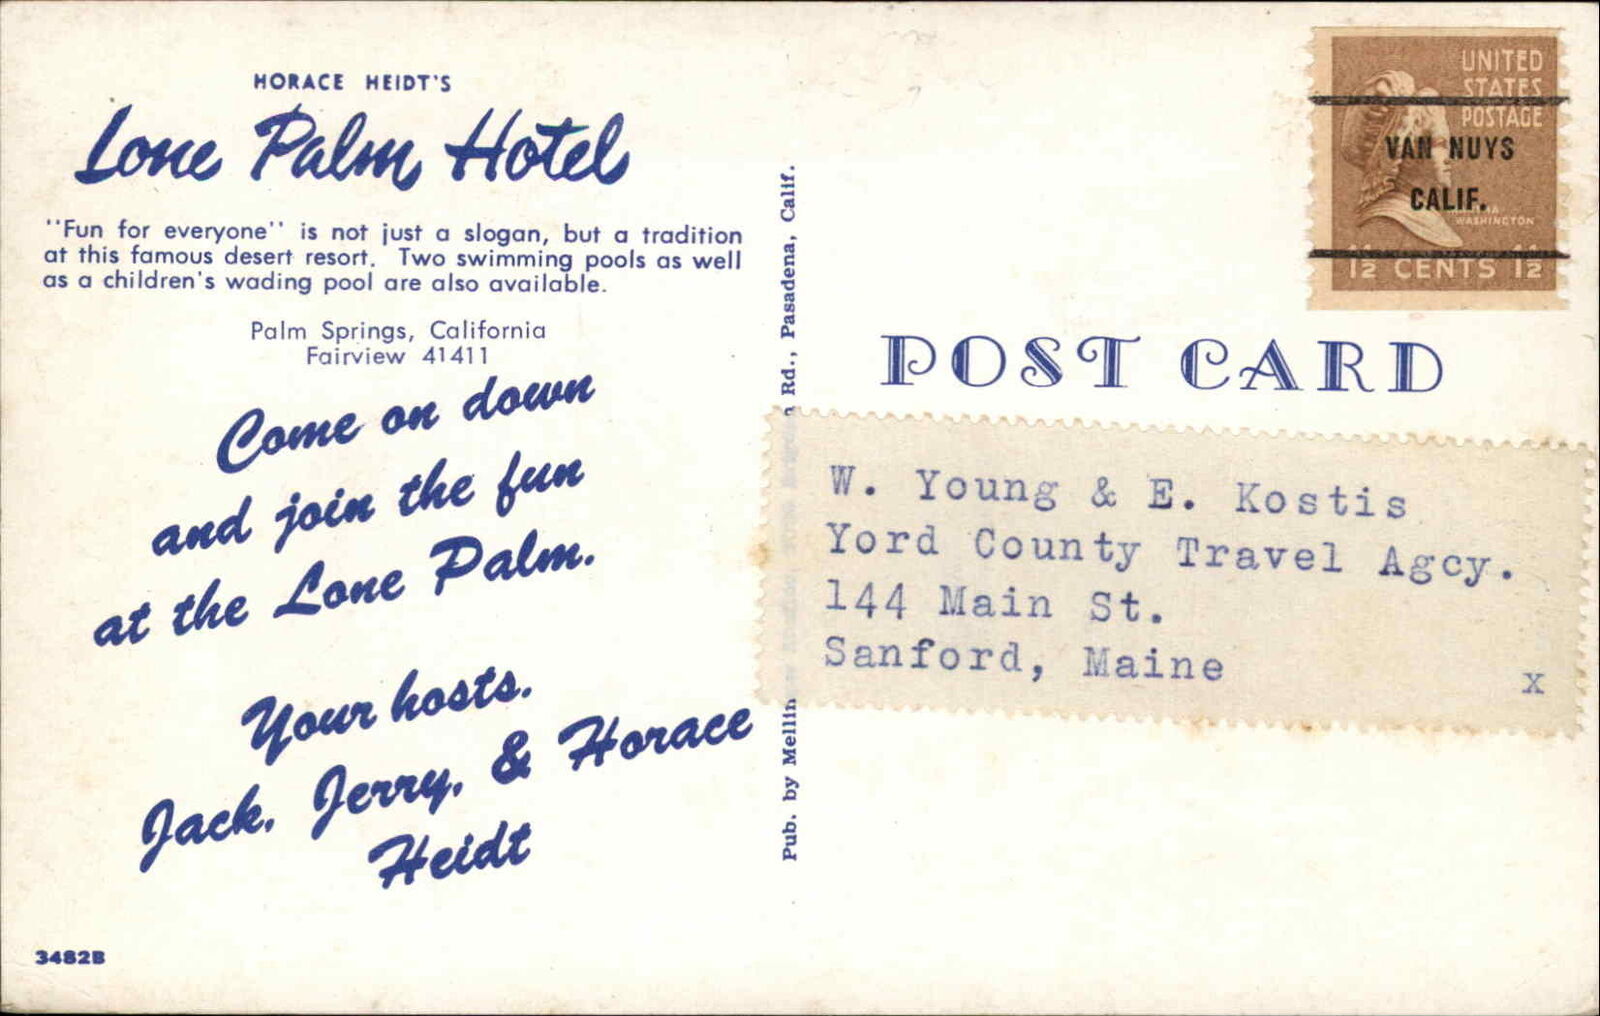 HORACE HEIDT'S
Lone Palm Hotel
"Fun for everyone" is not just a slogan, but a tradition
at this famous desert resort. Two swimming pools as well
as a children's wading pool are also available.
Palm Springs, California
Fairview 41411
Come on down
and join the fun
at the Lone Palm.
Your hosts,
Jack, Jerry, & Horace
Heidt
3482B
Pub. by Mellin Rd., Pasadena, Calif.
UNITED
STATES
POSTAGE
VAN NUYS
CALIF.
WASHINGTON
1½ CENTS 1½
POST CARD
W. Young & E. Kostis
Yord County Travel Agcy.
144 Main St.
Sanford, Maine
x